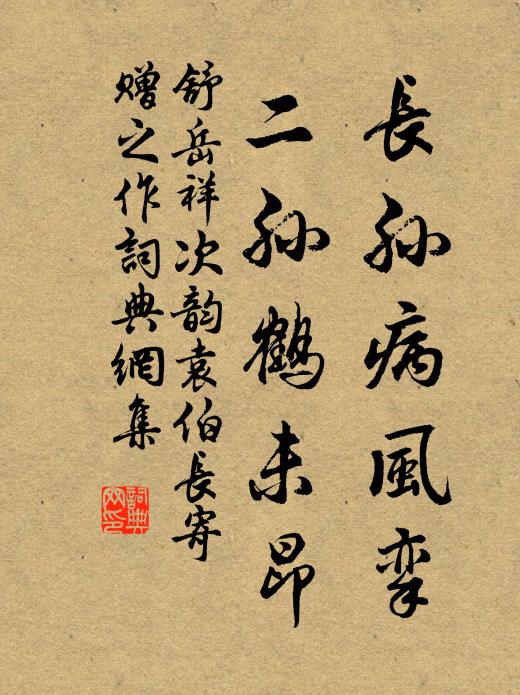 長孫病風挛
二孫鶴未昂
舒岳祥次韵袁伯長寄
赠之作詞典網集
詞典網印